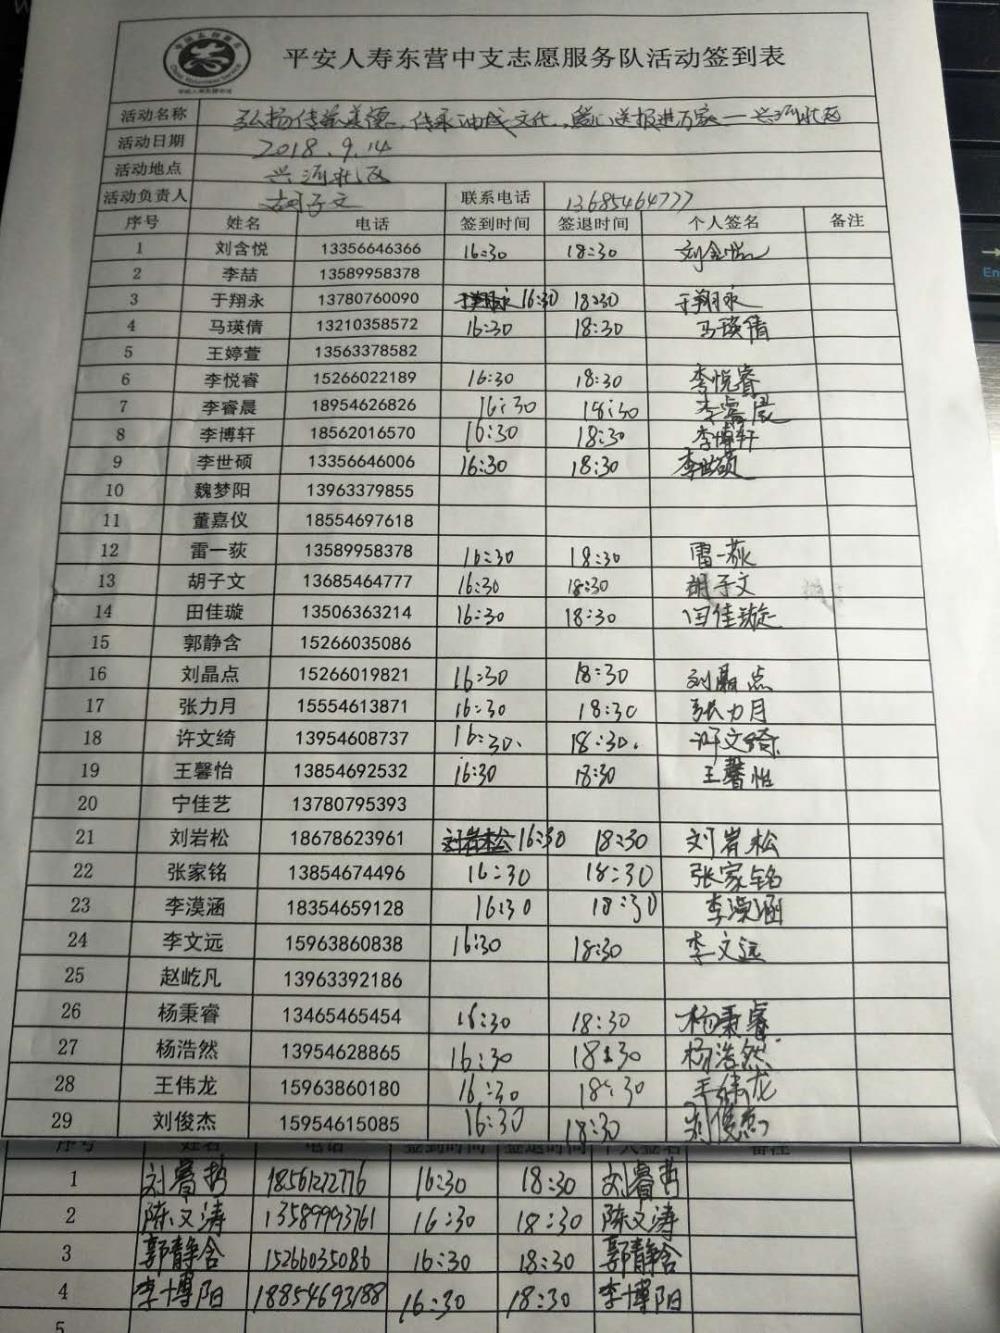 平安人寿东营中支志愿服务队活动签到表
活动名称 弘扬传统美德,传承油城文化,暖心送报进万家—兴河北区
活动日期 2018.9.14
活动地点 兴河北区
活动负责人 胡子文 联系电话 13685464777
序号 姓名 电话 签到时间 签退时间 个人签名 备注
1 刘含悦 13356646366 16:30 18:30 刘含悦
2 李喆 13589958378
3 于翔永 13780760090 于翔永 16:30 18:30 于翔永
4 马瑛倩 13210358572 16:30 18:30 马瑛倩
5 王婷萱 13563378582
6 李悦睿 15266022189 16:30 18:30 李悦睿
7 李睿晨 18954626826 16:30 18:30 李睿晨
8 李博轩 18562016570 16:30 18:30 李博轩
9 李世硕 13356646006 16:30 18:30 李世硕
10 魏梦阳 13963379855
11 董嘉仪 18554697618
12 雷一荻 13589958378 16:30 18:30 雷一荻
13 胡子文 13685464777 16:30 18:30 胡子文
14 田佳璇 13506363214 16:30 18:30 田佳璇
15 郭静含 15266035086
16 刘晶点 15266019821 16:30 18:30 刘晶点
17 张力月 15554613871 16:30 18:30 张力月
18 许文绮 13954608737 16:30. 18:30. 许文绮
19 王馨怡 13854692532 16:30 18:30 王馨怡
20 宁佳艺 13780795393
21 刘岩松 18678623961 刘岩松 16:30 18:30 刘岩松
22 张家铭 13854674496 16:30 18:30 张家铭
23 李漠涵 18354659128 16:30 18:30 李漠涵
24 李文远 15963860838 16:30 18:30 李文远
25 赵屹凡 13963392186
26 杨秉睿 13465465454 16:30 18:30 杨秉睿
27 杨浩然 13954628865 16:30 18:30 杨浩然
28 王伟龙 15963860180 16:30 18:30 王伟龙
29 刘俊杰 15954615085 16:30 18:30 刘俊杰
序号 姓名 电话 签到时间 签退时间 个人签名 备注
1 刘睿哲 18561222776 16:30 18:30 刘睿哲
2 陈文涛 13589993761 16:30 18:30 陈文涛
3 郭静含 15266035086 16:30 18:30 郭静含
4 李博阳 18854693188 16:30 18:30 李博阳
5